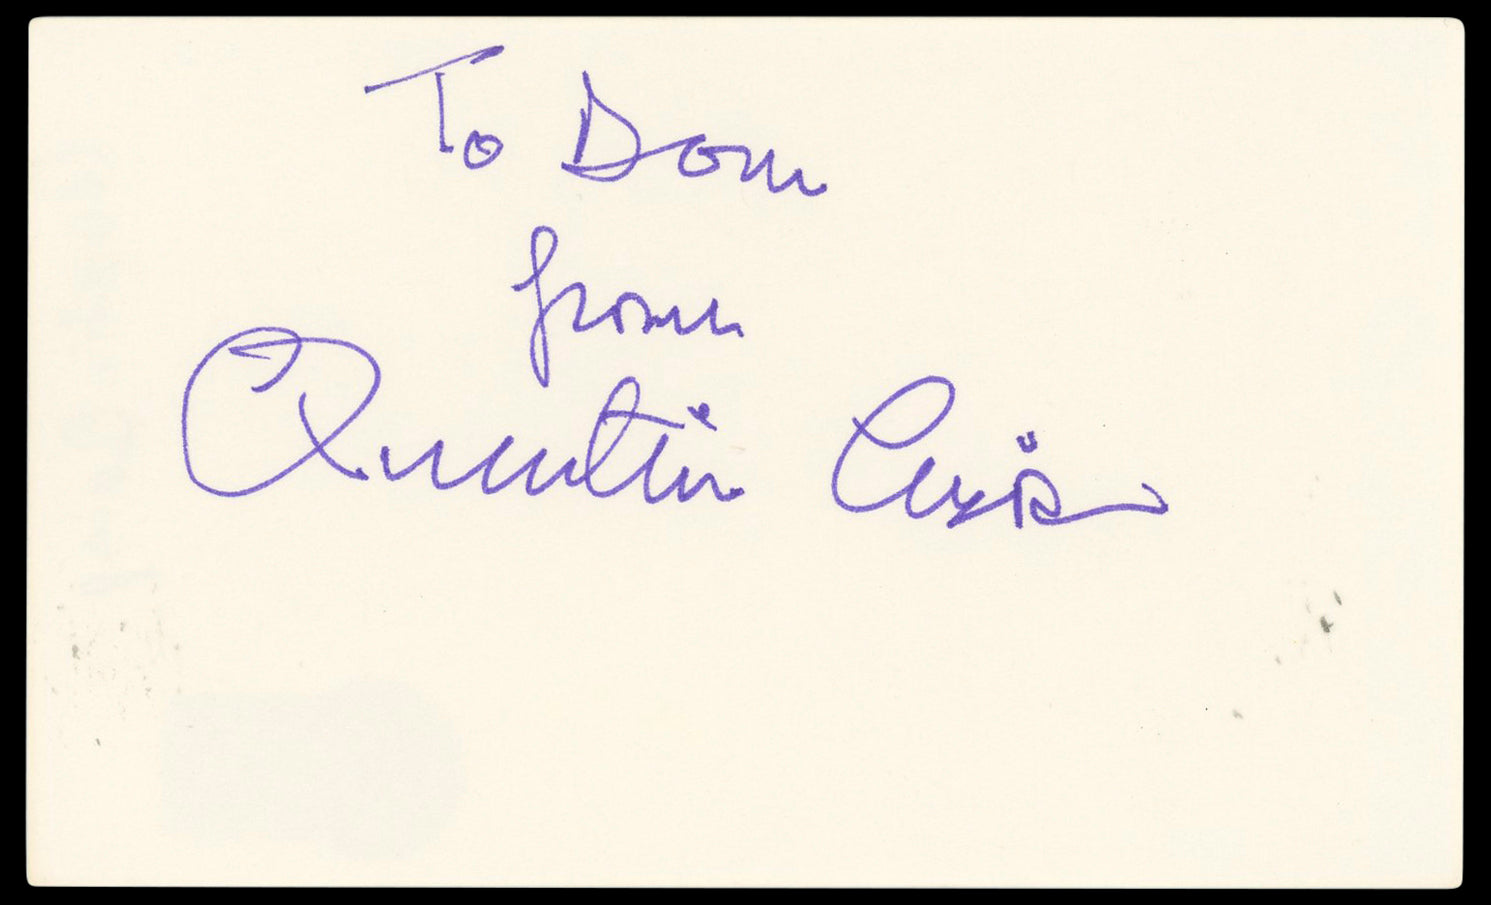 To Dom
from
Quentin Crisp